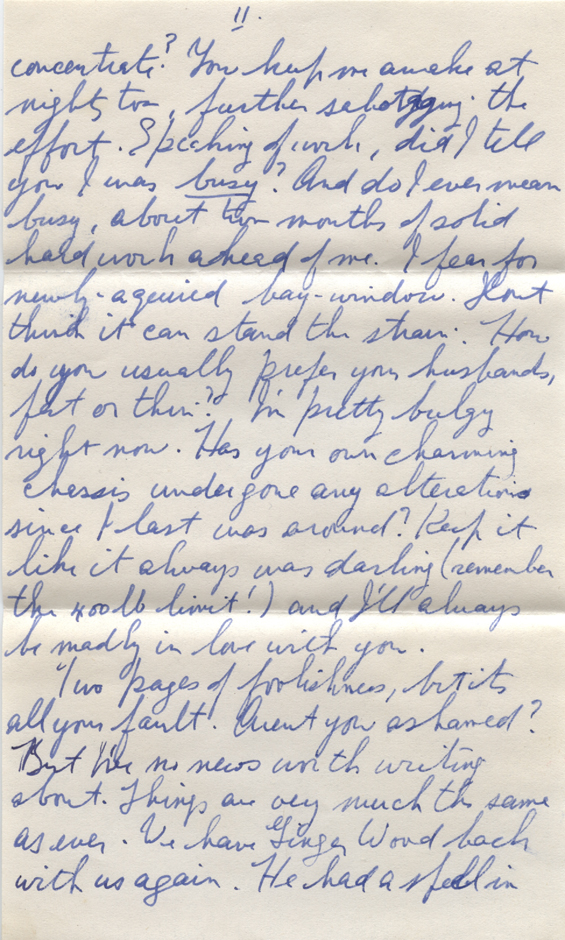 11.
concentrate? You keep me awake at
nights too, further sabotaging the
effort. Speaking of work, did I tell
you I was busy? And do I ever mean
busy, about two months of solid
hard work ahead of me. I fear for
newly-aquired bay-window. Dont
think it can stand the strain. How
do you usually prefer your husbands,
fat or thin? I'm pretty bulgy
right now. Has your own charming
chassis undergone any alterations
since I last was around? Keep it
like it always was darling (remember
the 400 lb limit!) and I'll always
be madly in love with you.
Two pages of foolishness, but its
all your fault. Arent you ashamed?
But I've no news worth writing
about. Things are very much the same
as ever. We have Ginger Wood back
with us again. He had a spell in